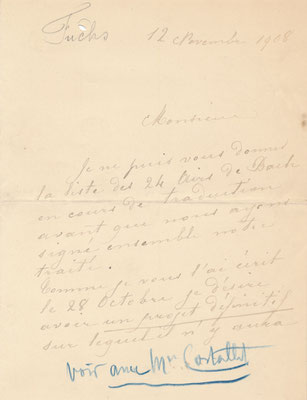 Fuchs
12 Novembre 1908
Monsieur
Je ne puis vous donner
la liste des 24 Airs de Bach
en cours de traduction
avant que nous ayons
signé ensemble notre
traité.
Comme je vous l'ai écrit
le 28 Octobre je désire
avoir un projet définitif
sur lequel il n'y aura
voir avec Mr Costallat